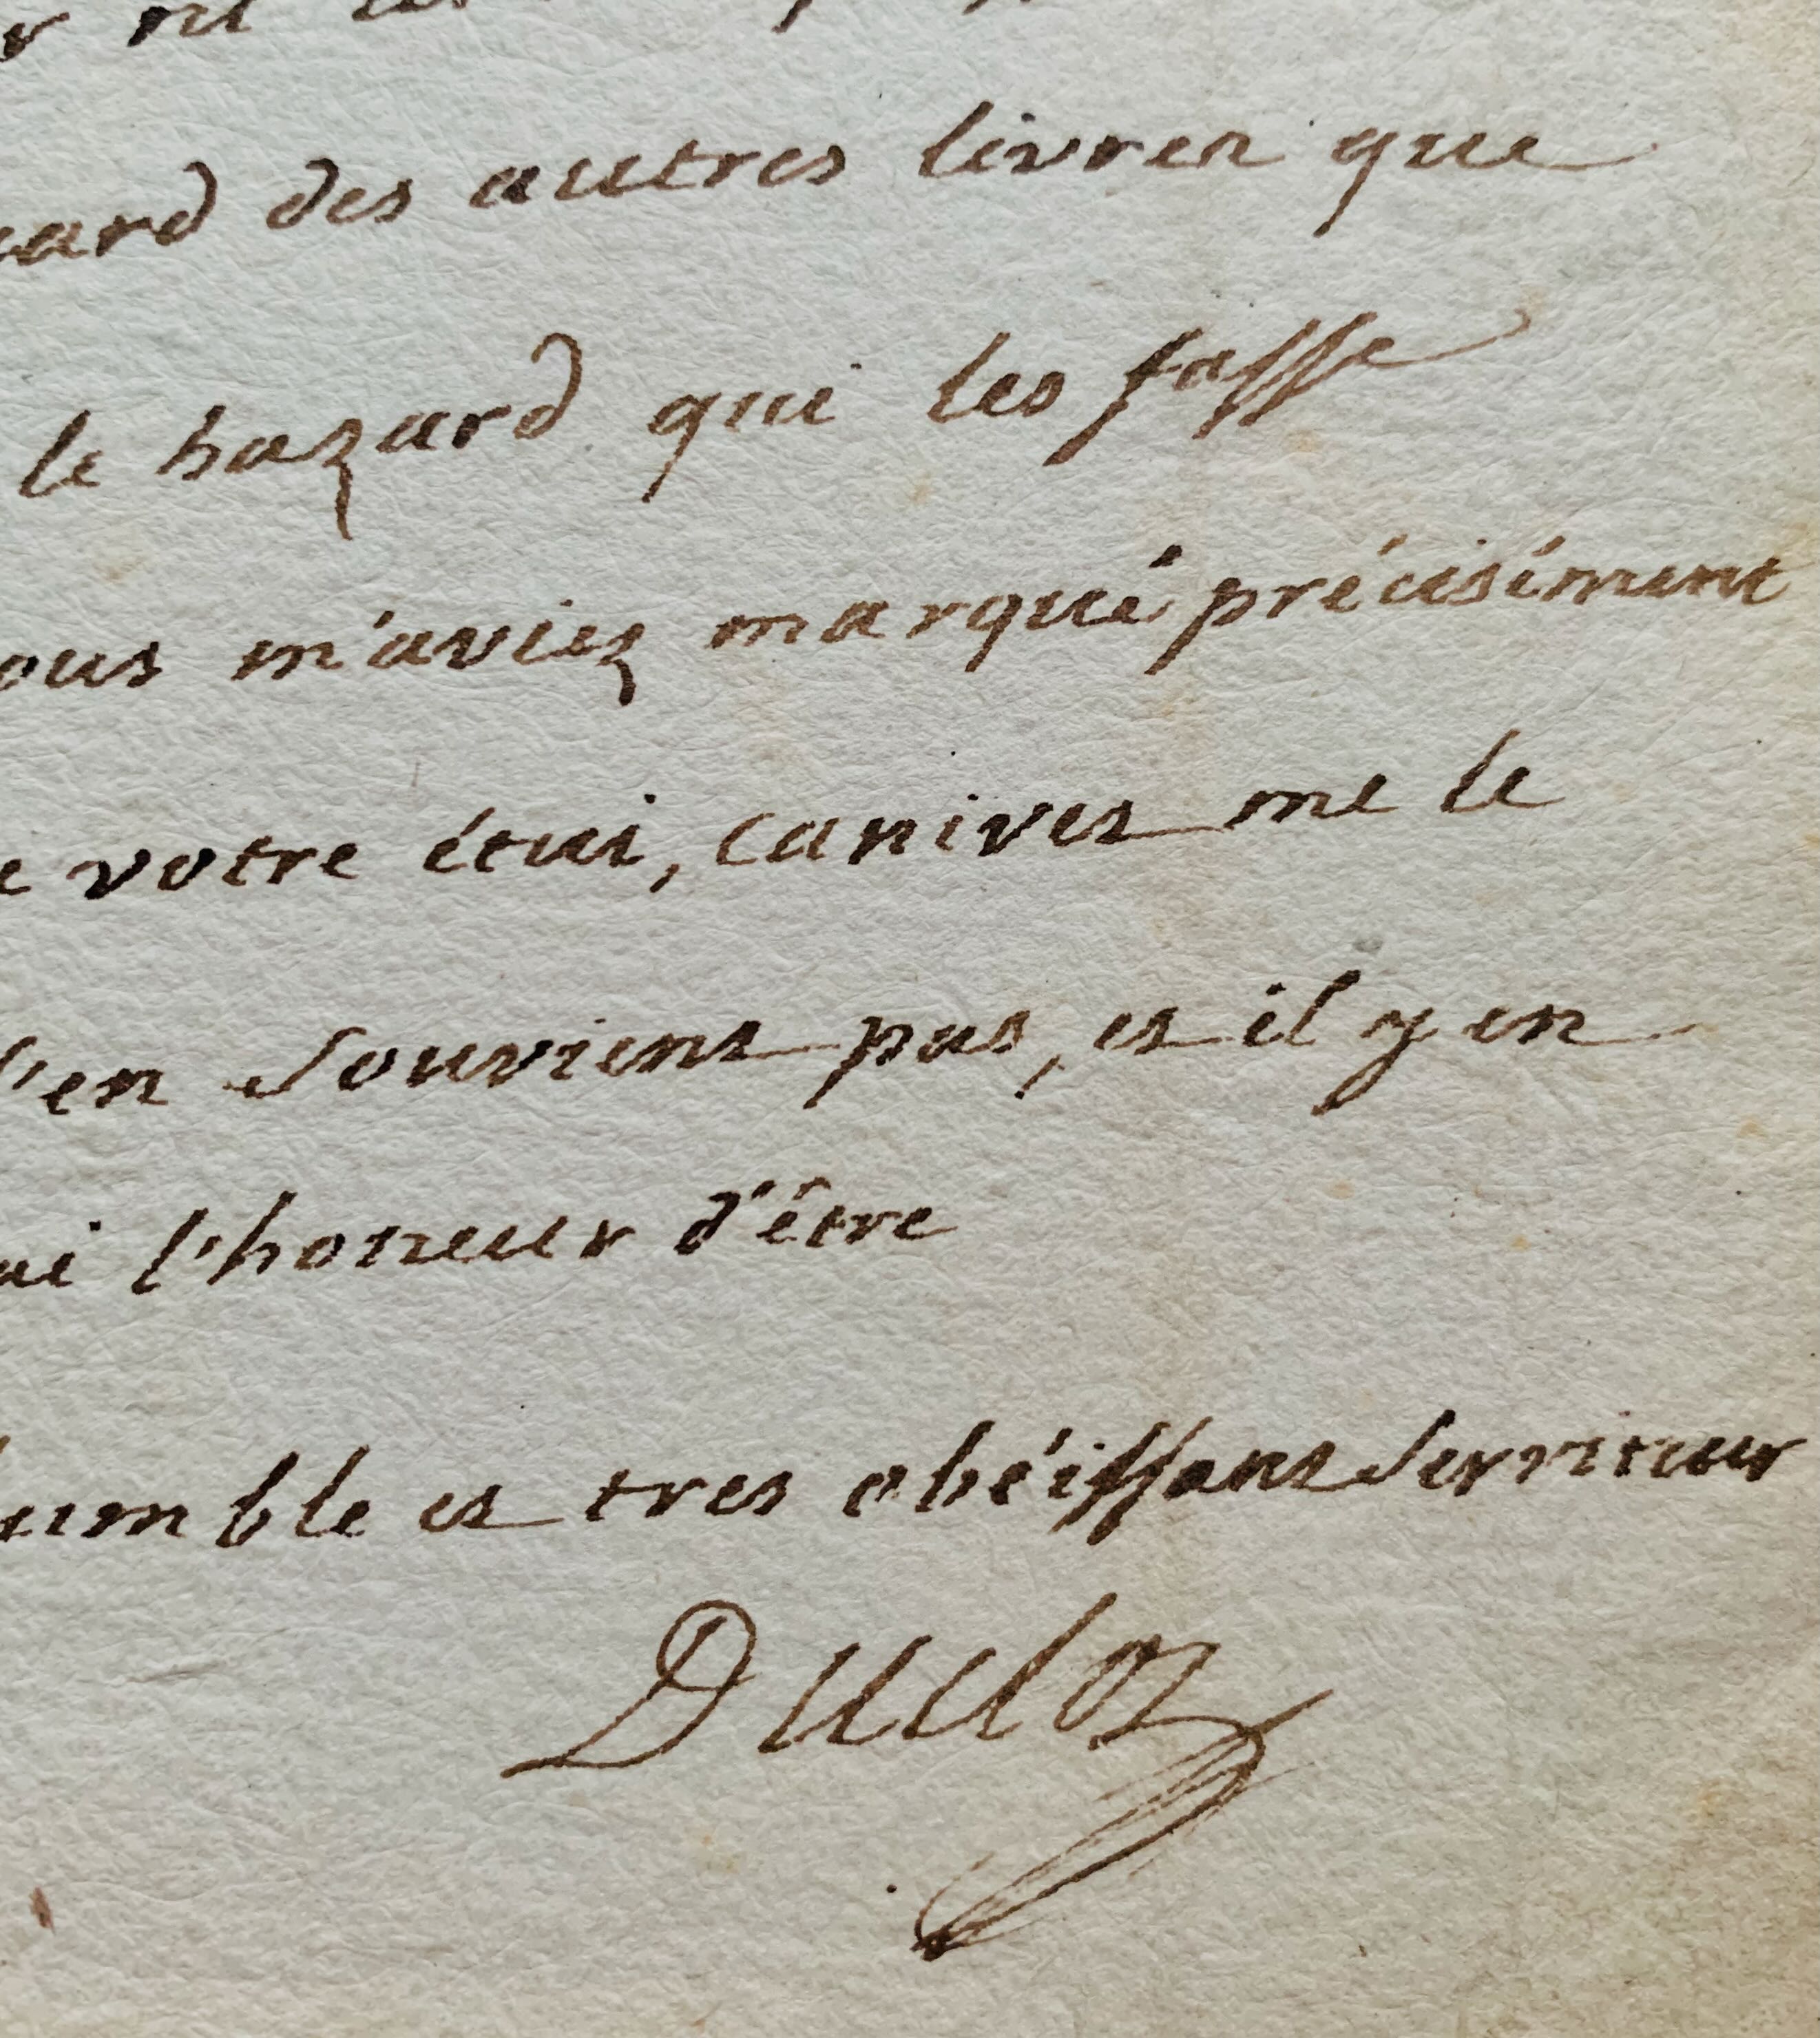 des autres livres que
le hazard qui les fasse
ous m'aviez marqué précisément
e votre étui, canivet me le
'en souvient pas, et il y en
ai l'honeur d'être
umble et tres obéissant serviteur
Duclos